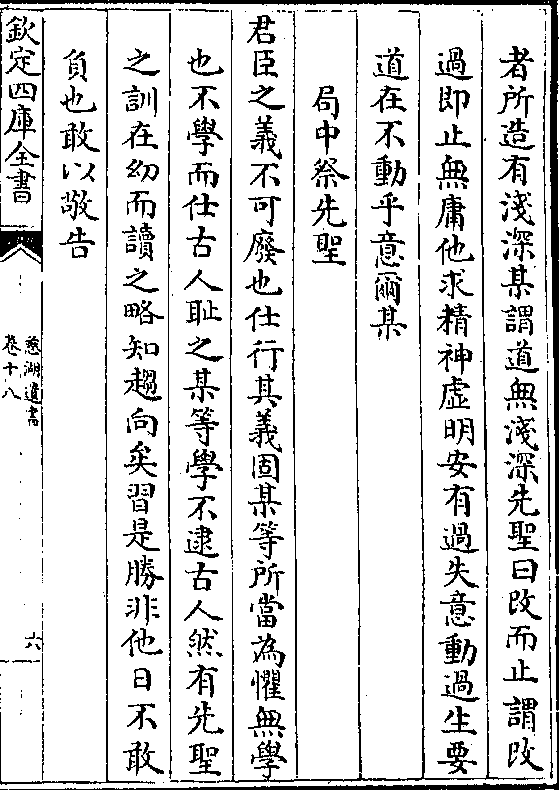 者所造有淺深某謂道無淺深先聖曰改而止謂改
過即止無庸他求精神虛明安有過失意動過生要
道在不動乎意爾某
局中祭先聖
君臣之義不可廢也仕行其義固某等所當為懼無學
也不學而仕古人耻之某等學不逮古人然有先聖
之訓在幼而讀之略知趨向矣習是勝非他日不敢
負也敢以敬告
欽定四庫全書
慈湖遺書
卷十八
六